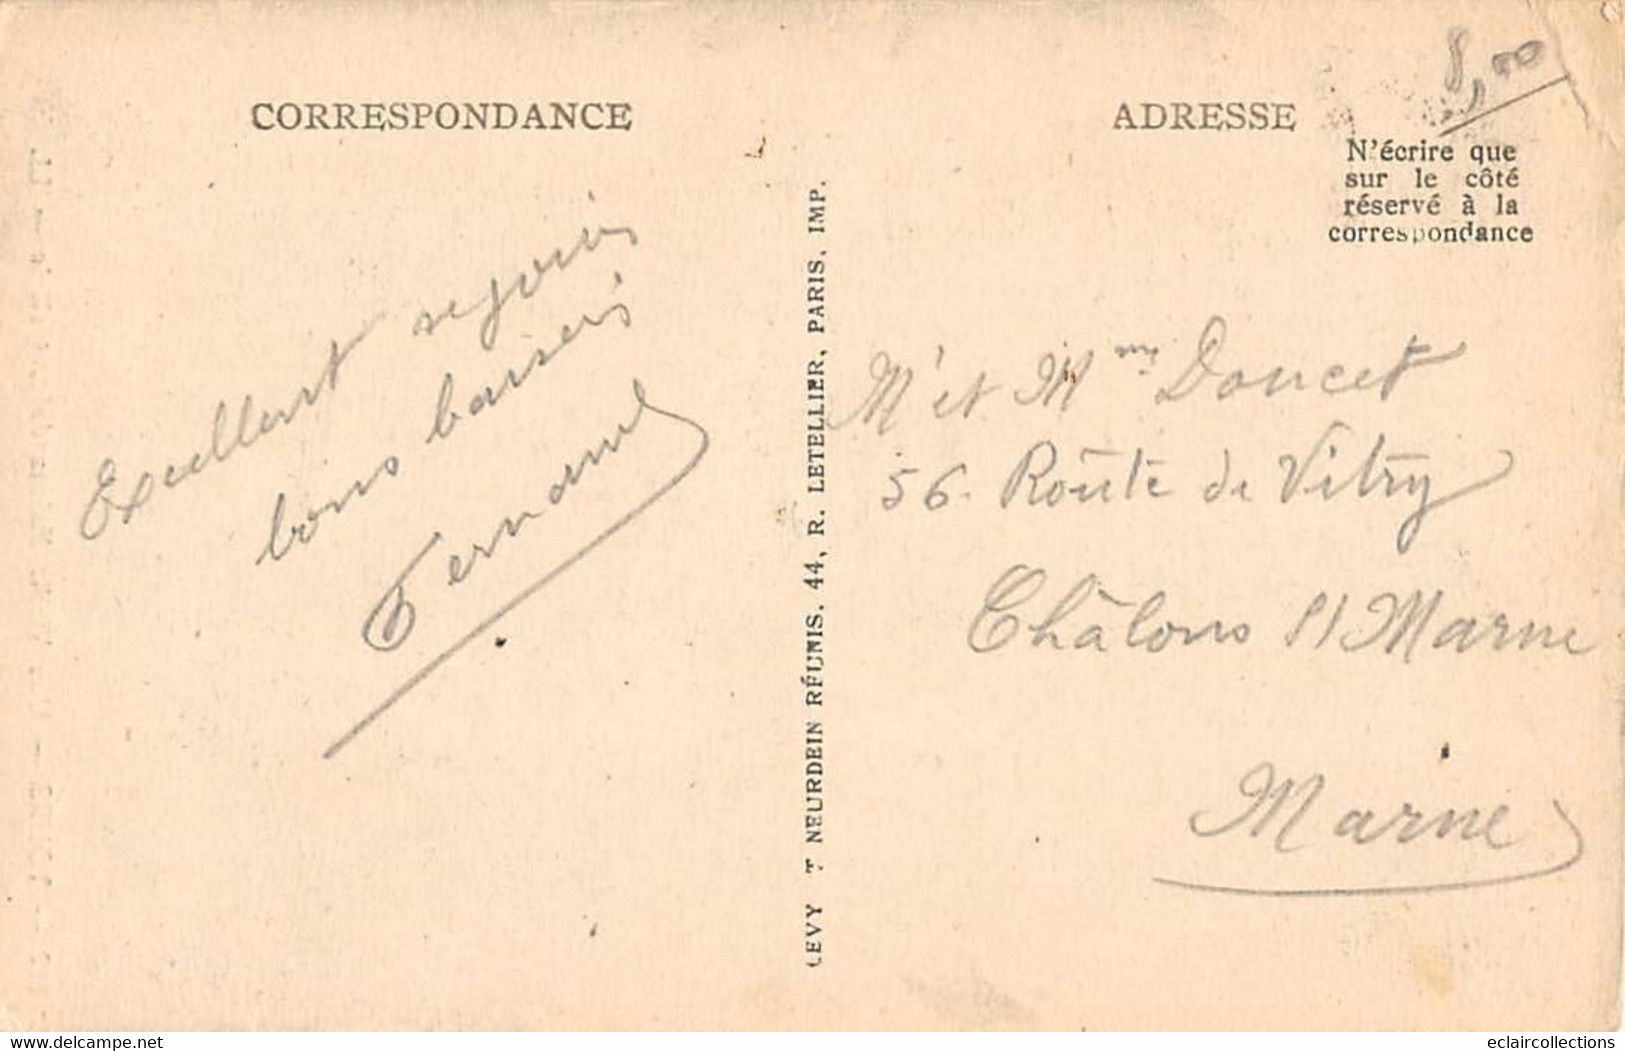 CORRESPONDANCE
ADRESSE
8,00
N'écrire que
sur le côté
réservé à la
correspondance
Excellent sejour
bons baisers
Fernand
LEVY ET NEURDEIN RÉUNIS, 44, R. LETELLIER, PARIS, IMP.
Mr et Mme Doucet
56. Route de Vitry
Châlons s/ Marne
Marne
www.delcampe.net
eclaircollections